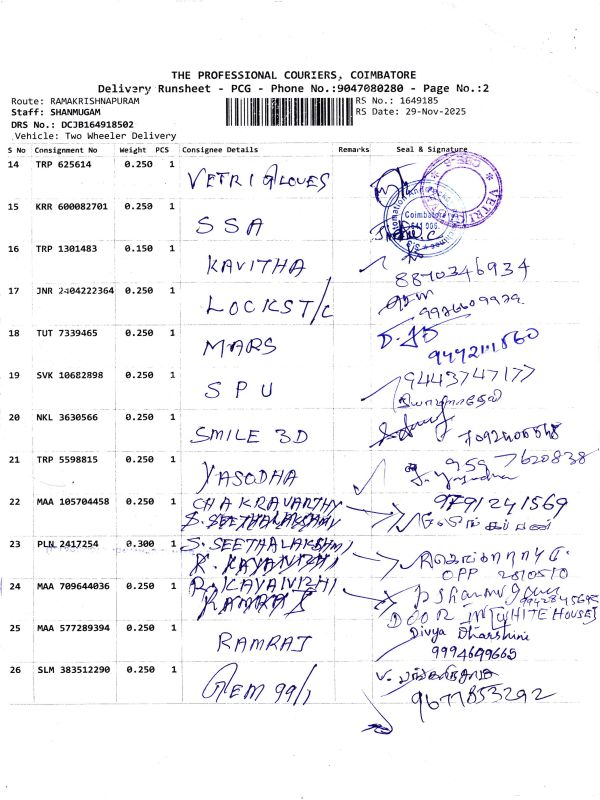 THE PROFESSIONAL COURIERS, COIMBATORE
Delivery Runsheet - PCG - Phone No.:9047080280 - Page No.:2
Route: RAMAKRISHNAPURAM
RS No.: 1649185
Staff: SHANMUGAM
RS Date: 29-Nov-2025
DRS No.: DCJB164918502
Vehicle: Two Wheeler Delivery
S No Consignment No Weight PCS Consignee Details Remarks Seal & Signature
14 TRP 625614 0.250 1 VETRI GLOVES
VETRI
15 KRR 600082701 0.250 1 SSA
Coimbatore
641 006.
16 TRP 1301483 0.150 1 KAVITHA
8870346934
17 JNR 2404222364 0.250 1 LOCKST/C
18 TUT 7339465 0.250 1 MARS
19 SVK 10682898 0.250 1 SPU
9443747177
20 NKL 3630566 0.250 1 SMILE 3D
21 TRP 5598815 0.250 1 YASODHA
959 7620838
22 MAA 105704458 0.250 1 CHAKRAVARTHY
9791241569
S. SEETHALAKSHMI
23 PLN 2417254 0.300 1 S. SEETHALAKSHMI
R. KAYALVIZHI
OPP 2810510
24 MAA 709644036 0.250 1 R. KAYALVIZHI
RAMRAJ
DOOR IN [WHITE HOUSE]
25 MAA 577289394 0.250 1 RAMRAJ
Divya Dharshini
9994699669
26 SLM 383512290 0.250 1 GEM 99/1
9677853292